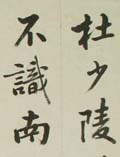 杜少陵
不識南